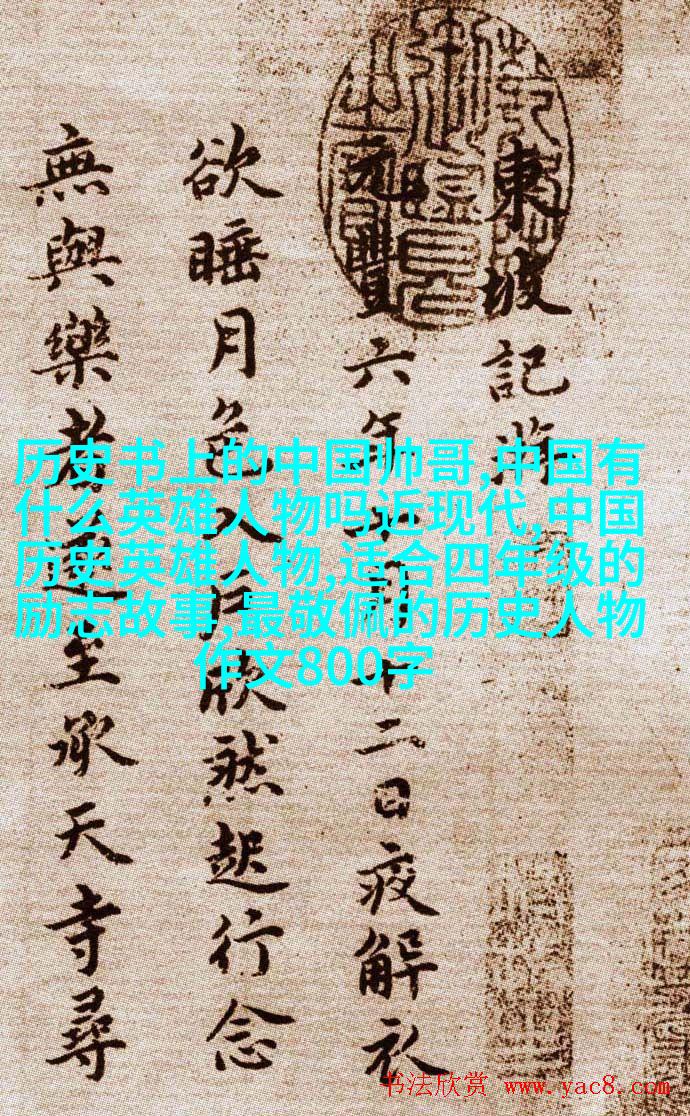 東坡記
元豐六年十月十二日疲解衣
欲睡月色入戶欣然起行念
無與樂者遂至承天寺尋
历史书上的中国帅哥,中国有
什么英雄人物吗近现代,中国
历史英雄人物,适合四年级的
励志故事,最敬佩的历史人物
作文800字
书法欣赏 www.yac8.com